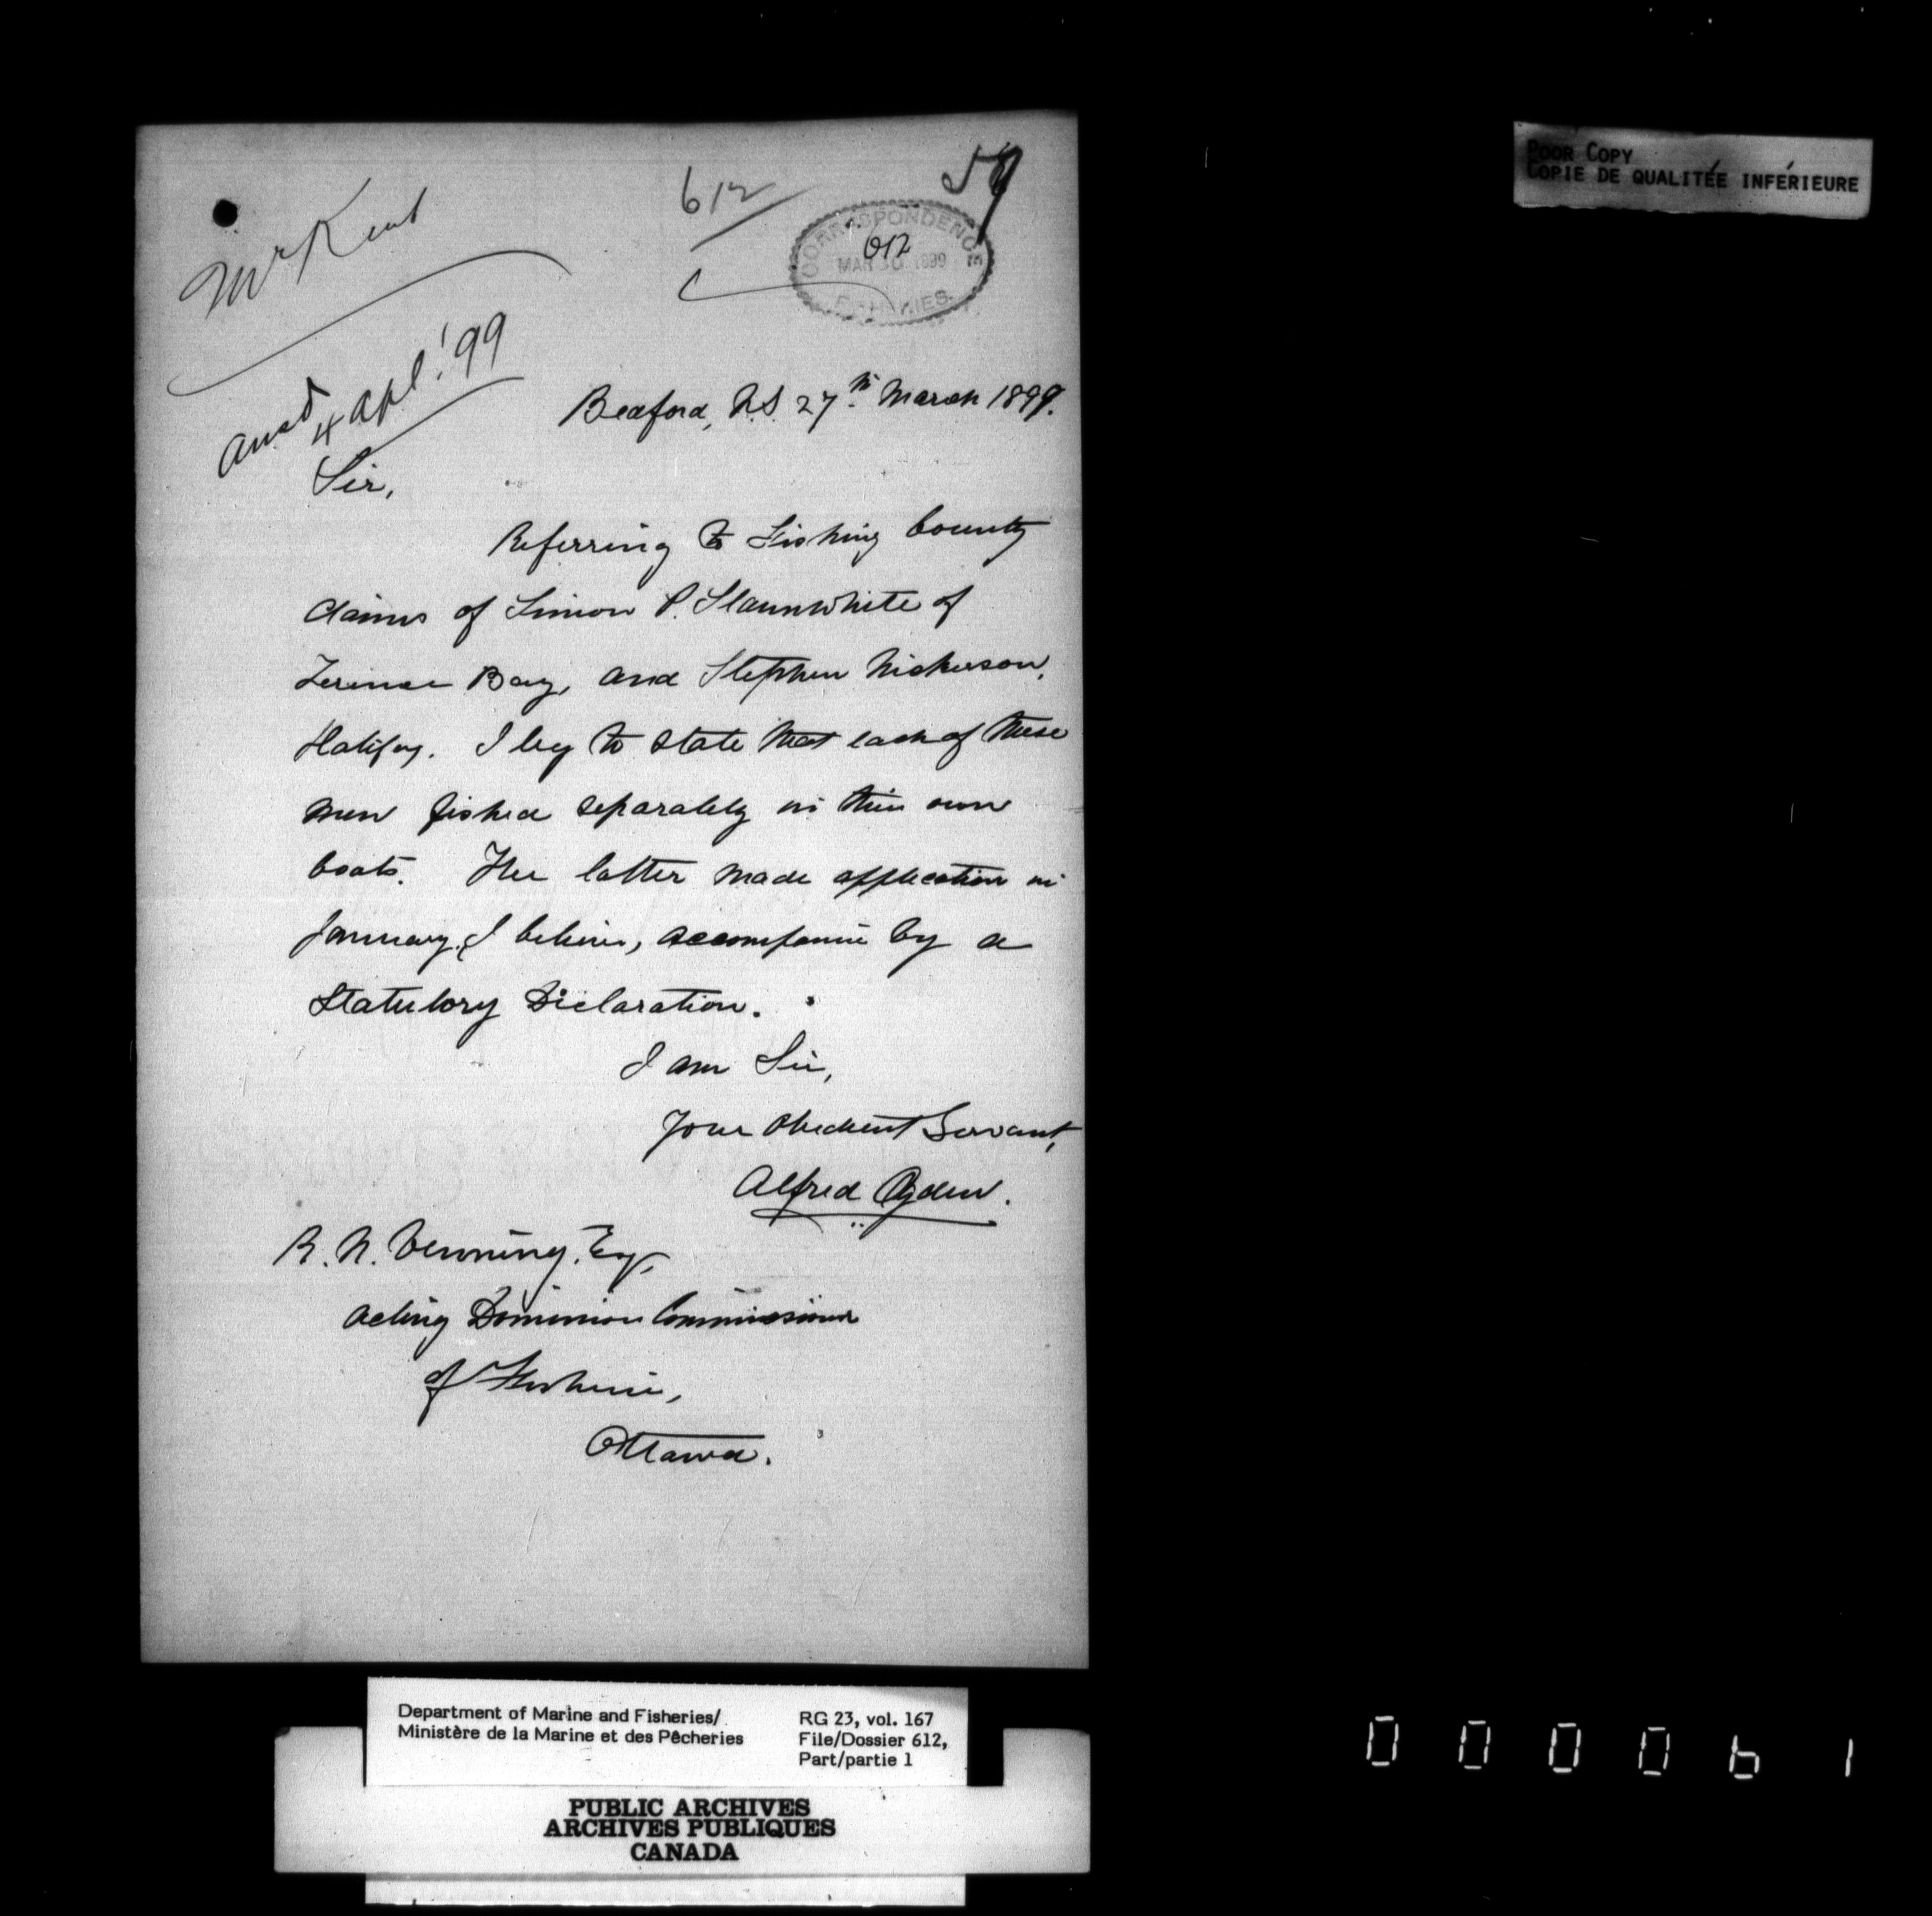 POOR COPY
COPIE DE QUALITÉE INFÉRIEURE
Mr Kent
612
59
CORRESPONDENCE
612
MAR 30 1899
FISHERIES.
Ansd 4 Apl. '99
Bedford, N.S. 27th March 1899.
Sir,
Referring to Fishing bounty
claims of Simon P. Slaunwhite of
Terence Bay, and Stephen Nickerson,
Halifax. I beg to state that each of these
men fished separately in their own
boats. The latter made application in
January, I believe, accompanied by a
Statutory Declaration.
I am Sir,
Your obedient Servant,
Alfred Ogden.
R. N. Venning, Esq,
Acting Dominion Commissioner
of Fisheries,
Ottawa.
Department of Marine and Fisheries/
Ministère de la Marine et des Pêcheries
RG 23, vol. 167
File/Dossier 612,
Part/partie 1
PUBLIC ARCHIVES
ARCHIVES PUBLIQUES
CANADA
000061